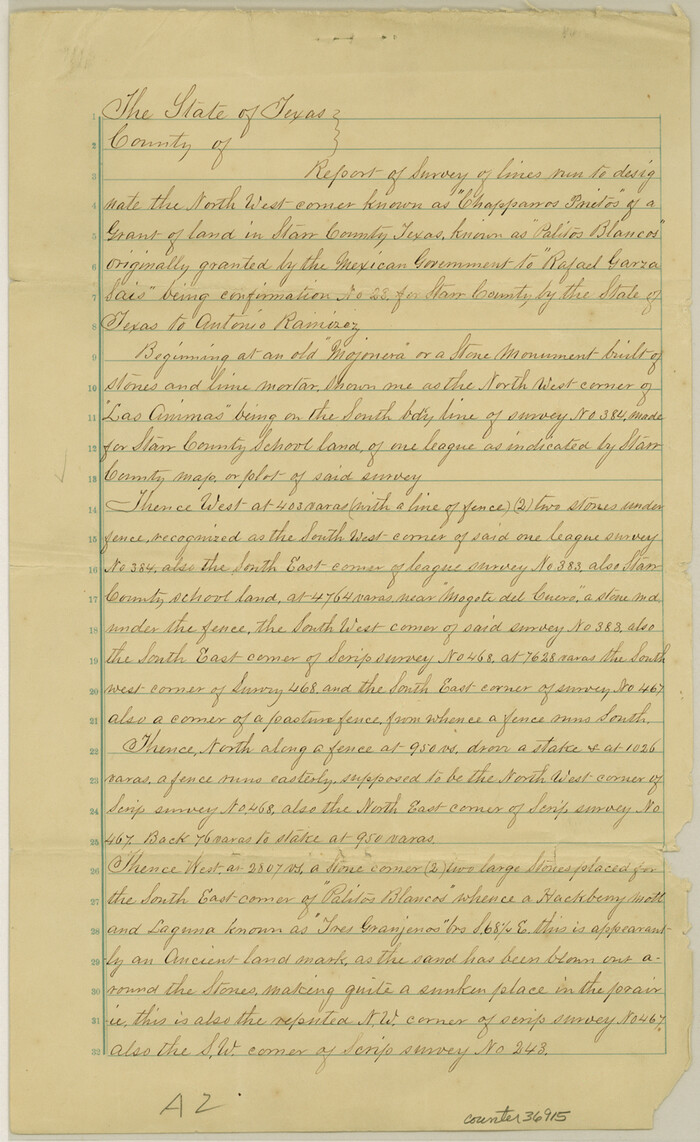 1 The State of Texas }
2 County of }
3 Report of Survey of lines run to desig
4 nate the North West corner known as "Chapparros Prietos" of a
5 Grant of land in Starr County Texas, known as "Palitos Blancos"
6 originally granted by the Mexican Government to "Rafael Garza
7 Sais" being confirmation No 23. for Starr County, by the State of
8 Texas to Antonio Ramirez
9 Beginning at an old "Mojonera" or a Stone Monument built of
10 stones and lime mortar, shown me as the North West corner of
11 "Las Animas" being on the South bdy line of survey No 384, made
12 for Starr County School land, of one league as indicated by Starr
13 County map, or plot of said survey
14 Thence West at 403 varas (with a line of fence) (2) two stones under
15 fence, recognized as the South West corner of said one league survey
16 No 384, also the South East corner of league survey No 383, also Starr
17 County school land, at 4764 varas, near "Mogote del Cuero", a stone md
18 under the fence, the South West corner of said survey No 383, also
19 the South East corner of Scrip survey No 468, at 7628 varas the South
20 west corner of Survey 468, and the South East corner of survey No 467
21 also a corner of a pasture fence, from whence a fence runs South.
22 Thence, North along a fence at 950 vs. drove a stake & at 1026
23 varas, a fence runs easterly, supposed to be the North West corner of
24 Scrip survey No 468, also the North East corner of Scrip survey No
25 467. Back 76 varas to stake at 950 varas.
26 Thence West, at 2807 vs, a stone corner (2) two large Stones placed for
27 the South East corner of "Palitos Blancos" whence a Hackberry mott
28 and Laguna known as "Tres Granjenos" brs S. 68½ E. this is appearant
29 ly an Ancient land mark, as the sand has been blown out a-
30 round the Stones, making quite a sunken place in the prair
31 ie, this is also the reputed N.W. corner of scrip survey No 467,
32 also the S.W. corner of Scrip survey No 243.
A2.
counter 36915